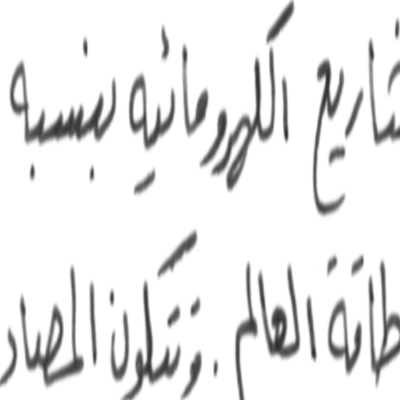 شاريع الكهرومائيه بنسبه
طاقة العالم . وتتكون المصاد